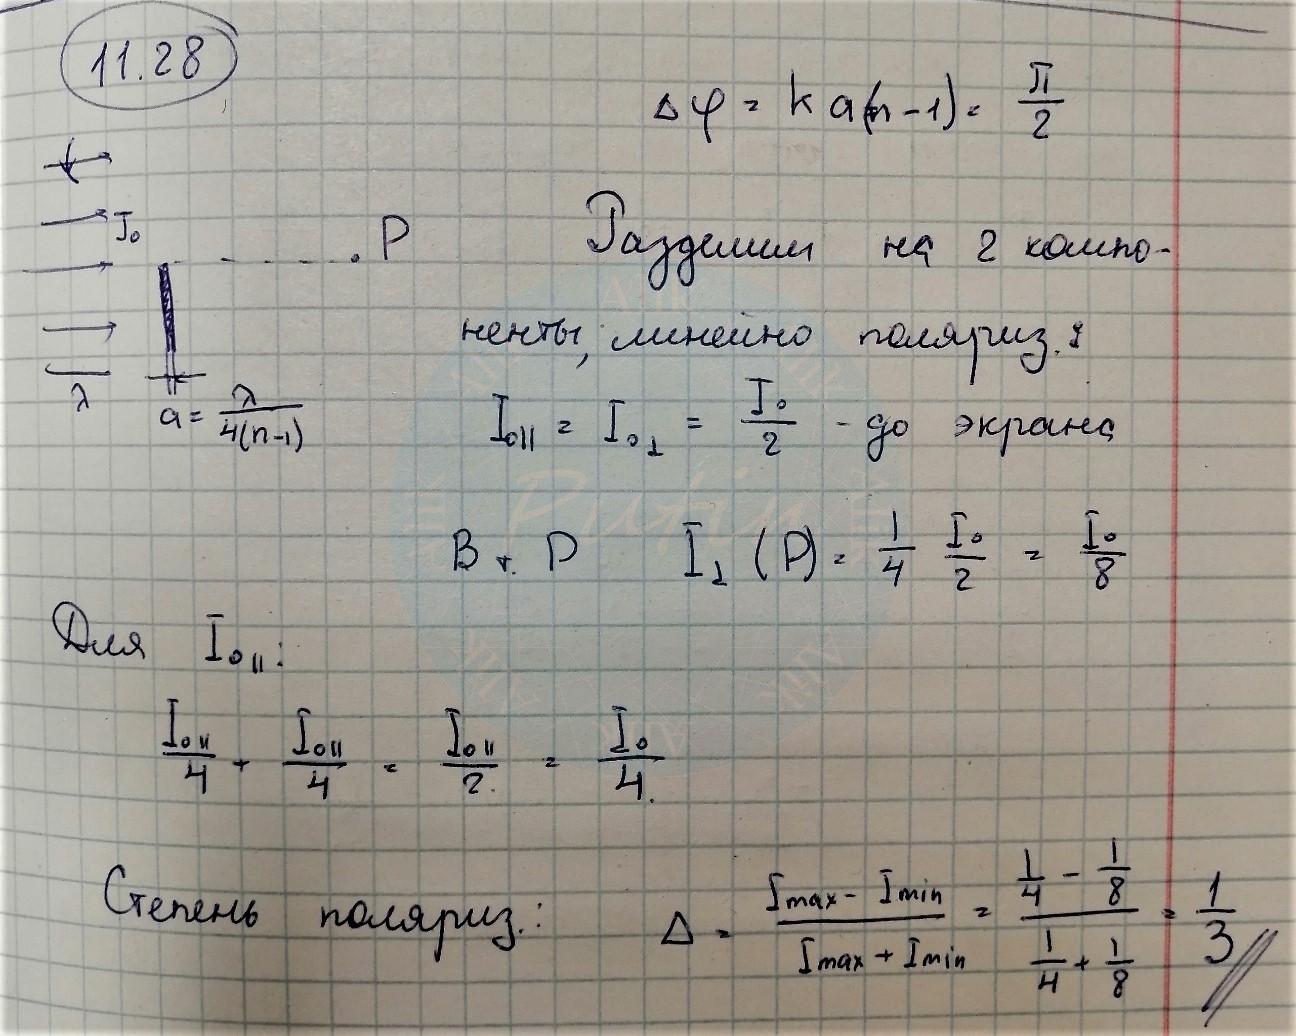 11.28
Δφ = k a(n-1) = π/2
I₀
P
λ
a = λ/4(n-1)
Разделим на 2 компо-
ненты, линейно поляриз.:
I₀∥ = I₀⊥ = I₀/2 - до экрана
В т. P I⊥(P) = 1/4 I₀/2 = I₀/8
Для I₀∥:
I₀∥/4 + I₀∥/4 = I₀∥/2 = I₀/4.
Степень поляриз.: Δ = (Imax - Imin)/(Imax + Imin) = (1/4 - 1/8)/(1/4 + 1/8) = 1/3